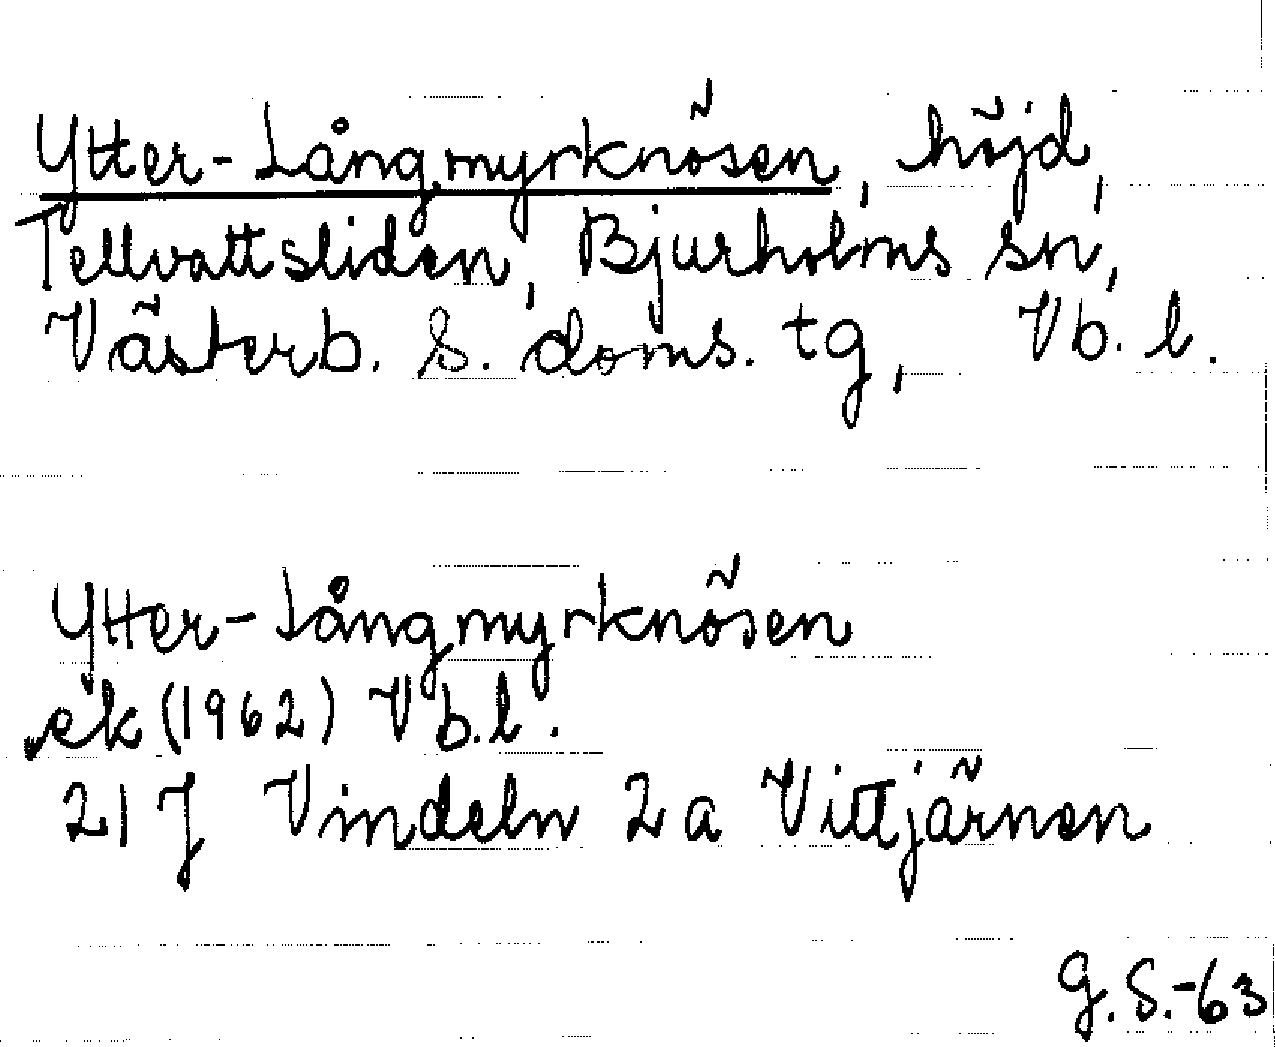 Ytter-Långmyrknösen, höjd,
Tellvattsliden, Bjurholms sn,
Västerb. S. doms. tg, Vb. l.
Ytter-Långmyrknösen
ek (1962) Vb. l.
21 J Vindeln 2a Vittjärnen
G.S.-63